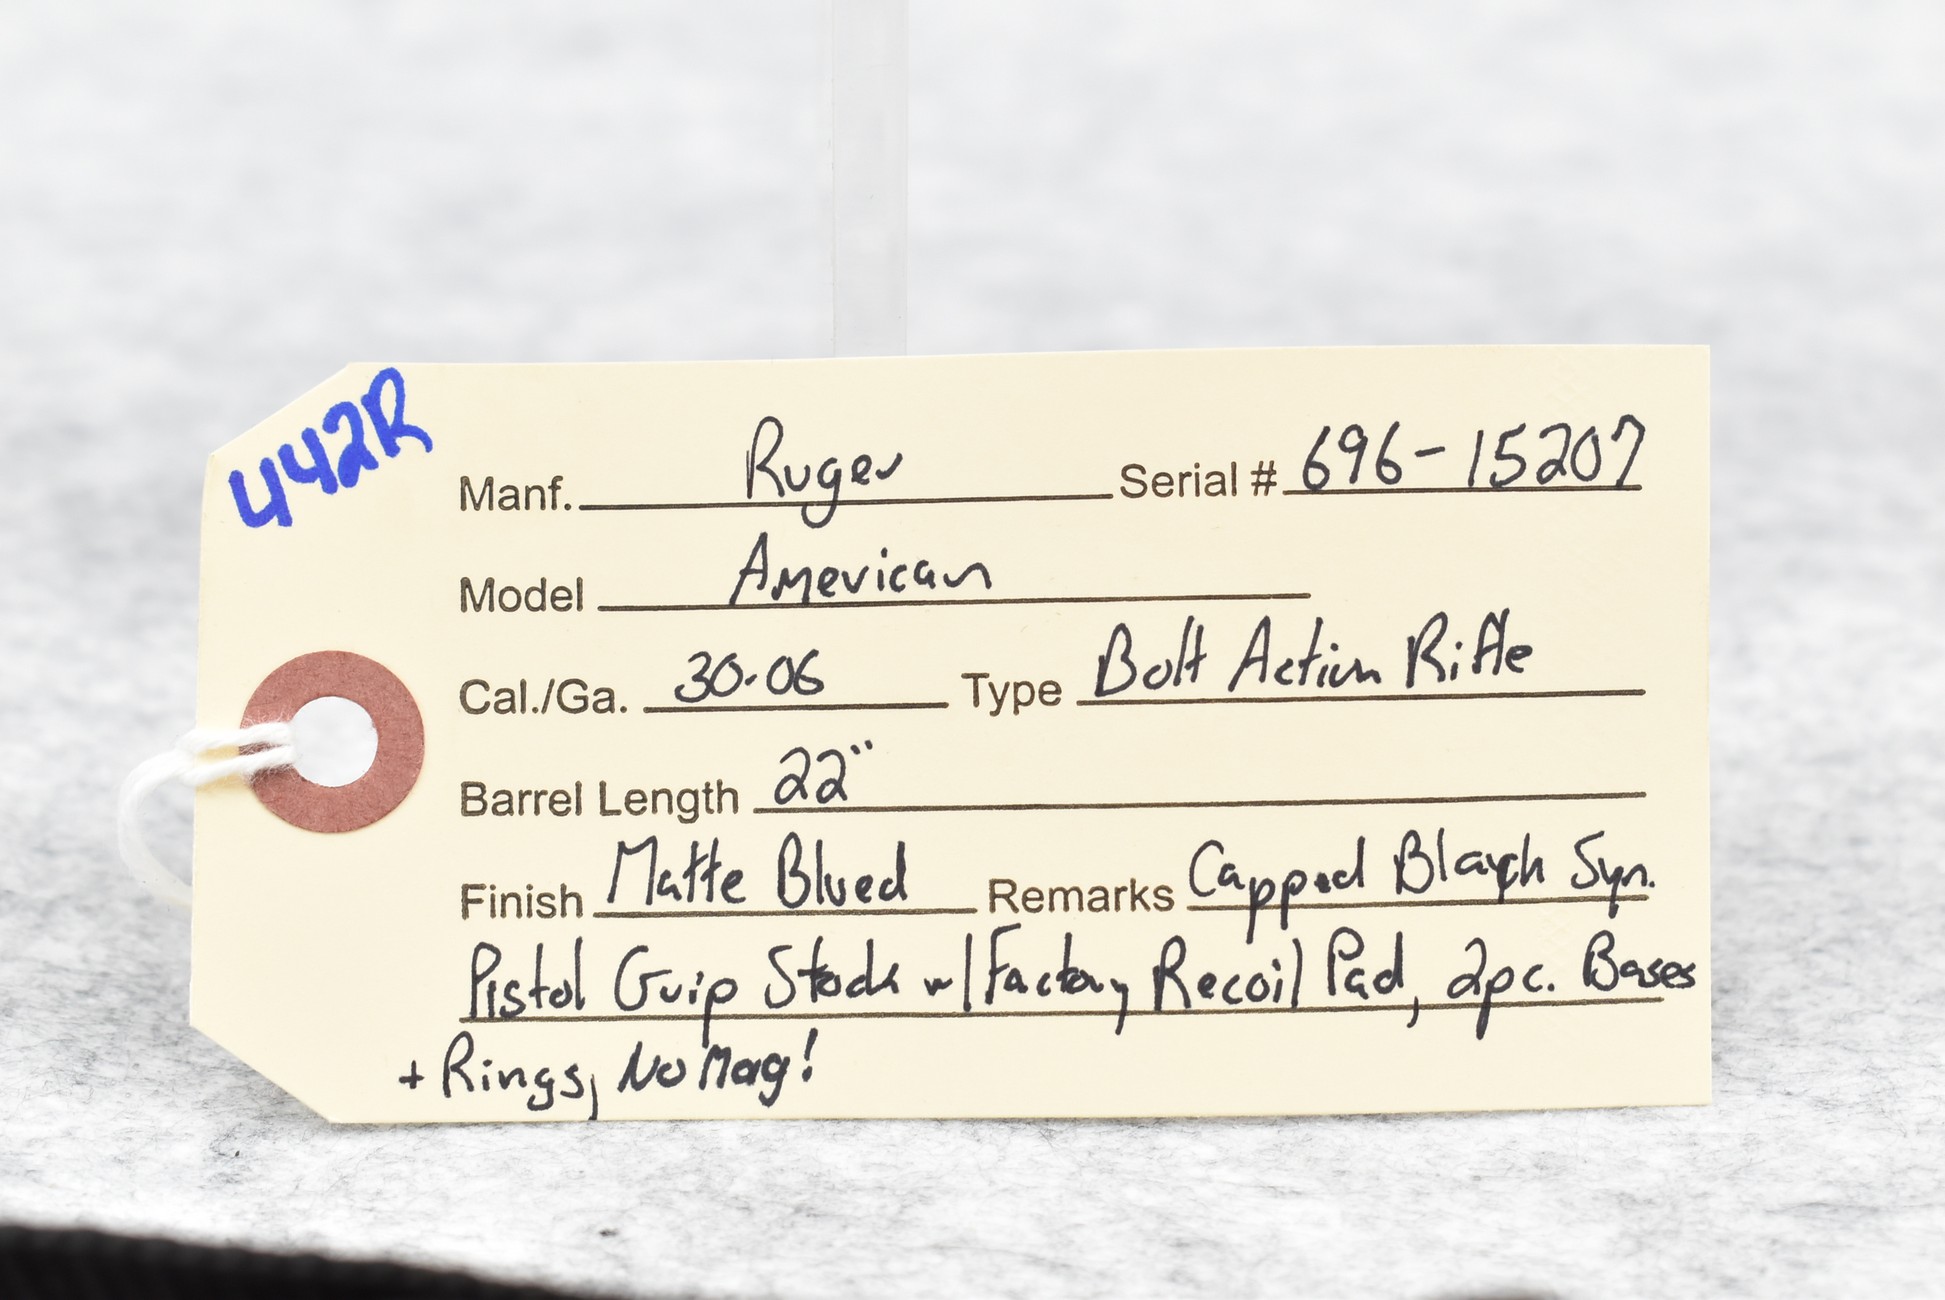 442R
Manf. Ruger Serial # 696-15207
Model American
Cal./Ga. 30-06 Type Bolt Action Rifle
Barrel Length 22"
Finish Matte Blued Remarks Capped Black Syn.
Pistol Grip Stock w/ Factory Recoil Pad, 2pc. Bases
+ Rings, No Mag!